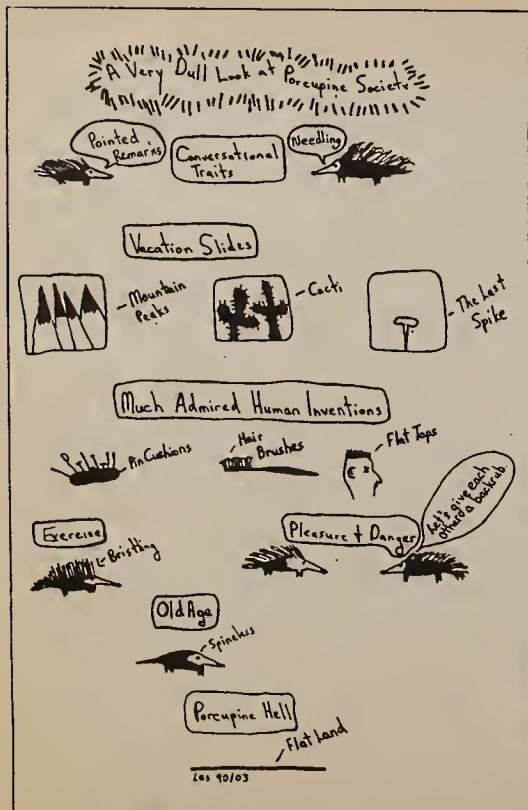 A Very Dull Look at Porcupine Society
Pointed
Remarks
Conversational
Traits
Needling
Vacation Slides
Mountain
Peaks
Cacti
The Last
Spike
Much Admired Human Inventions
Pin Cushions
Hair
Brushes
Flat Tops
Exercise
Bristling
Pleasure & Danger
Let's give each
other a backrub.
Old Age
Spineless
Porcupine Hell
Flat Land
Les 90/03